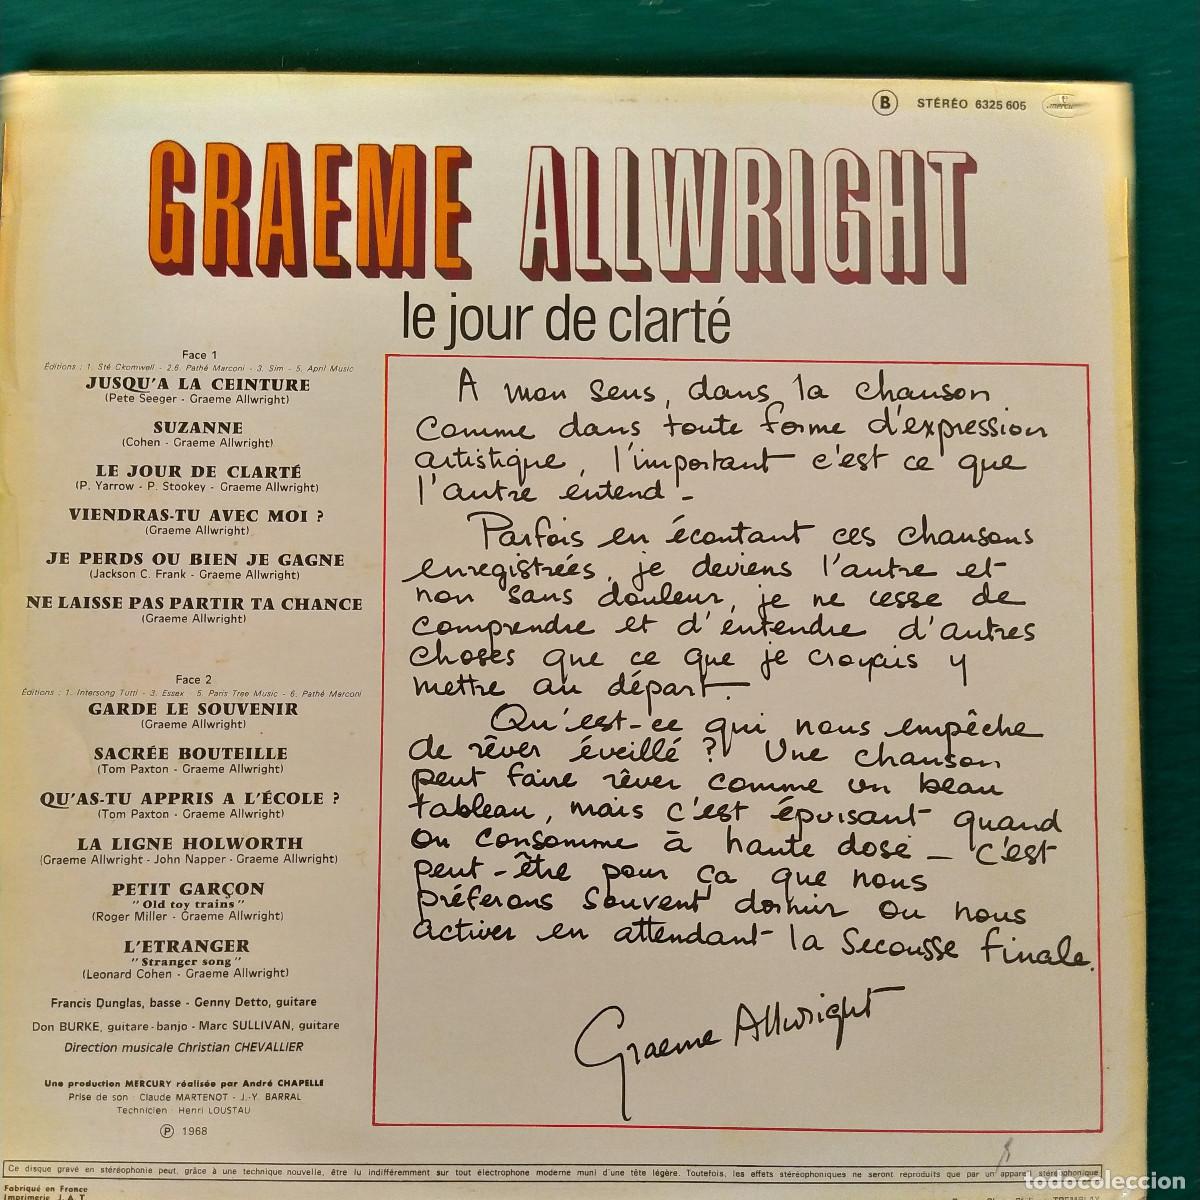 B STÉRÉO 6325 605
GRAEME ALLWRIGHT
le jour de clarté
Face 1
Éditions : 1. Sté Ckomwell - 2.6. Pathé Marconi - 3. Sim - 5. April Music
JUSQU'A LA CEINTURE
(Pete Seeger - Graeme Allwright)
SUZANNE
(Cohen - Graeme Allwright)
LE JOUR DE CLARTÉ
(P. Yarrow - P. Stookey - Graeme Allwright)
VIENDRAS-TU AVEC MOI ?
(Graeme Allwright)
JE PERDS OU BIEN JE GAGNE
(Jackson C. Frank - Graeme Allwright)
NE LAISSE PAS PARTIR TA CHANCE
(Graeme Allwright)
Face 2
Éditions : 1. Intersong Tutti - 3. Essex - 5. Paris Tree Music - 6. Pathé Marconi
GARDE LE SOUVENIR
(Graeme Allwright)
SACRÉE BOUTEILLE
(Tom Paxton - Graeme Allwright)
QU'AS-TU APPRIS A L'ÉCOLE ?
(Tom Paxton - Graeme Allwright)
LA LIGNE HOLWORTH
(Graeme Allwright - John Napper - Graeme Allwright)
PETIT GARÇON
"Old toy trains"
(Roger Miller - Graeme Allwright)
L'ETRANGER
"Stranger song"
(Leonard Cohen - Graeme Allwright)
Francis Dunglas, basse - Genny Detto, guitare
Don BURKE, guitare-banjo - Marc SULLIVAN, guitare
Direction musicale Christian CHEVALLIER
Une production MERCURY réalisée par André CHAPELLE
Prise de son : Claude MARTENOT - J.-Y. BARRAL
Technicien : Henri LOUSTAU
Ⓟ 1968
A mon sens, dans la chanson
comme dans toute forme d'expression
artistique, l'important c'est ce que
l'autre entend -
Parfois en écoutant ces chansons
enregistrées, je deviens l'autre et
non sans douleur, je ne cesse de
comprendre et d'entendre d'autres
choses que ce que je croyais y
mettre au départ.
Qu'est-ce qui nous empêche
de rêver éveillé ? Une chanson
peut faire rêver comme un beau
tableau, mais c'est épuisant quand
on consomme à haute dose - c'est
peut-être pour ça que nous
préférons souvent dormir ou nous
activer en attendant la secousse finale.
Graeme Allwright
Ce disque gravé en stéréophonie peut, grâce à une technique nouvelle, être lu indifféremment sur tout électrophone moderne muni d'une tête légère. Toutefois, les effets stéréophoniques ne seront reproduits que par un appareil stéréophonique
Fabriqué en France
Imprimerie J.A.T.
todocoleccion